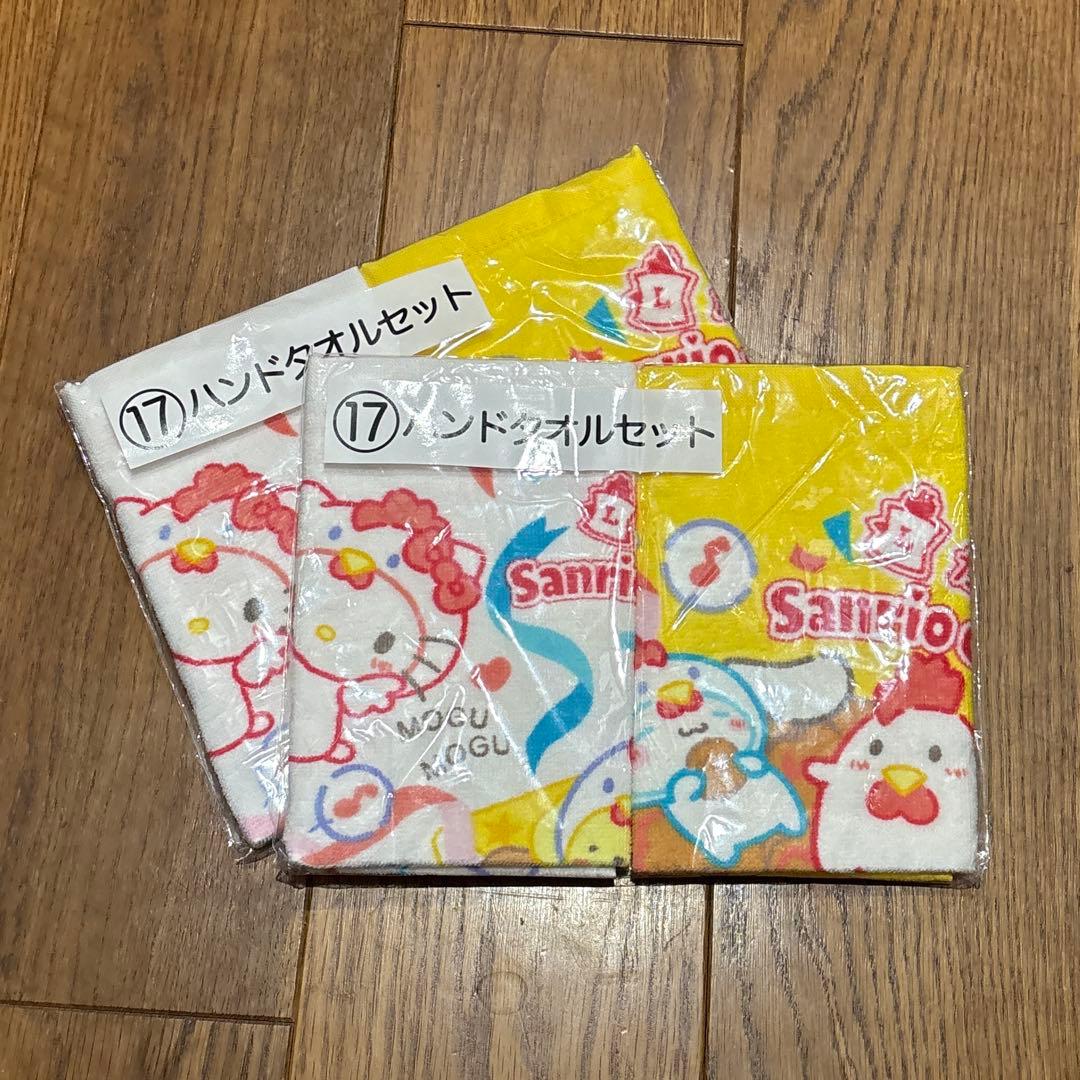 ⑰ハンドタオルセット
⑰ハンドタオルセット
L
L
Sanrio
Sanrio
MOGU
MOGU